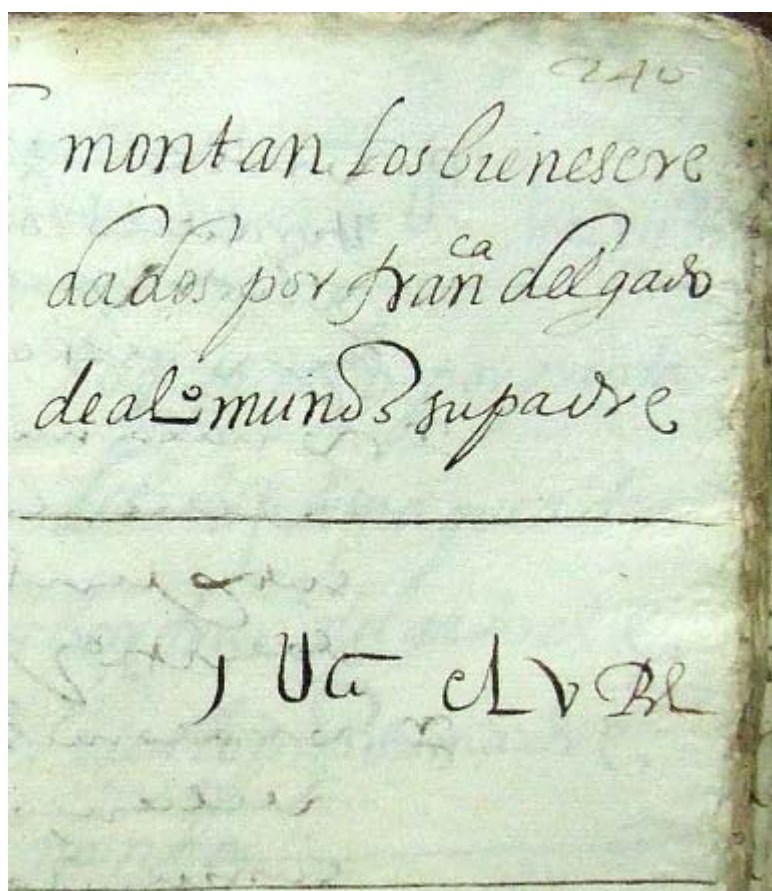 240
montan los bienes ere
dados por fran^ca delgado
de al^o munos su padre
j U cLv Rs